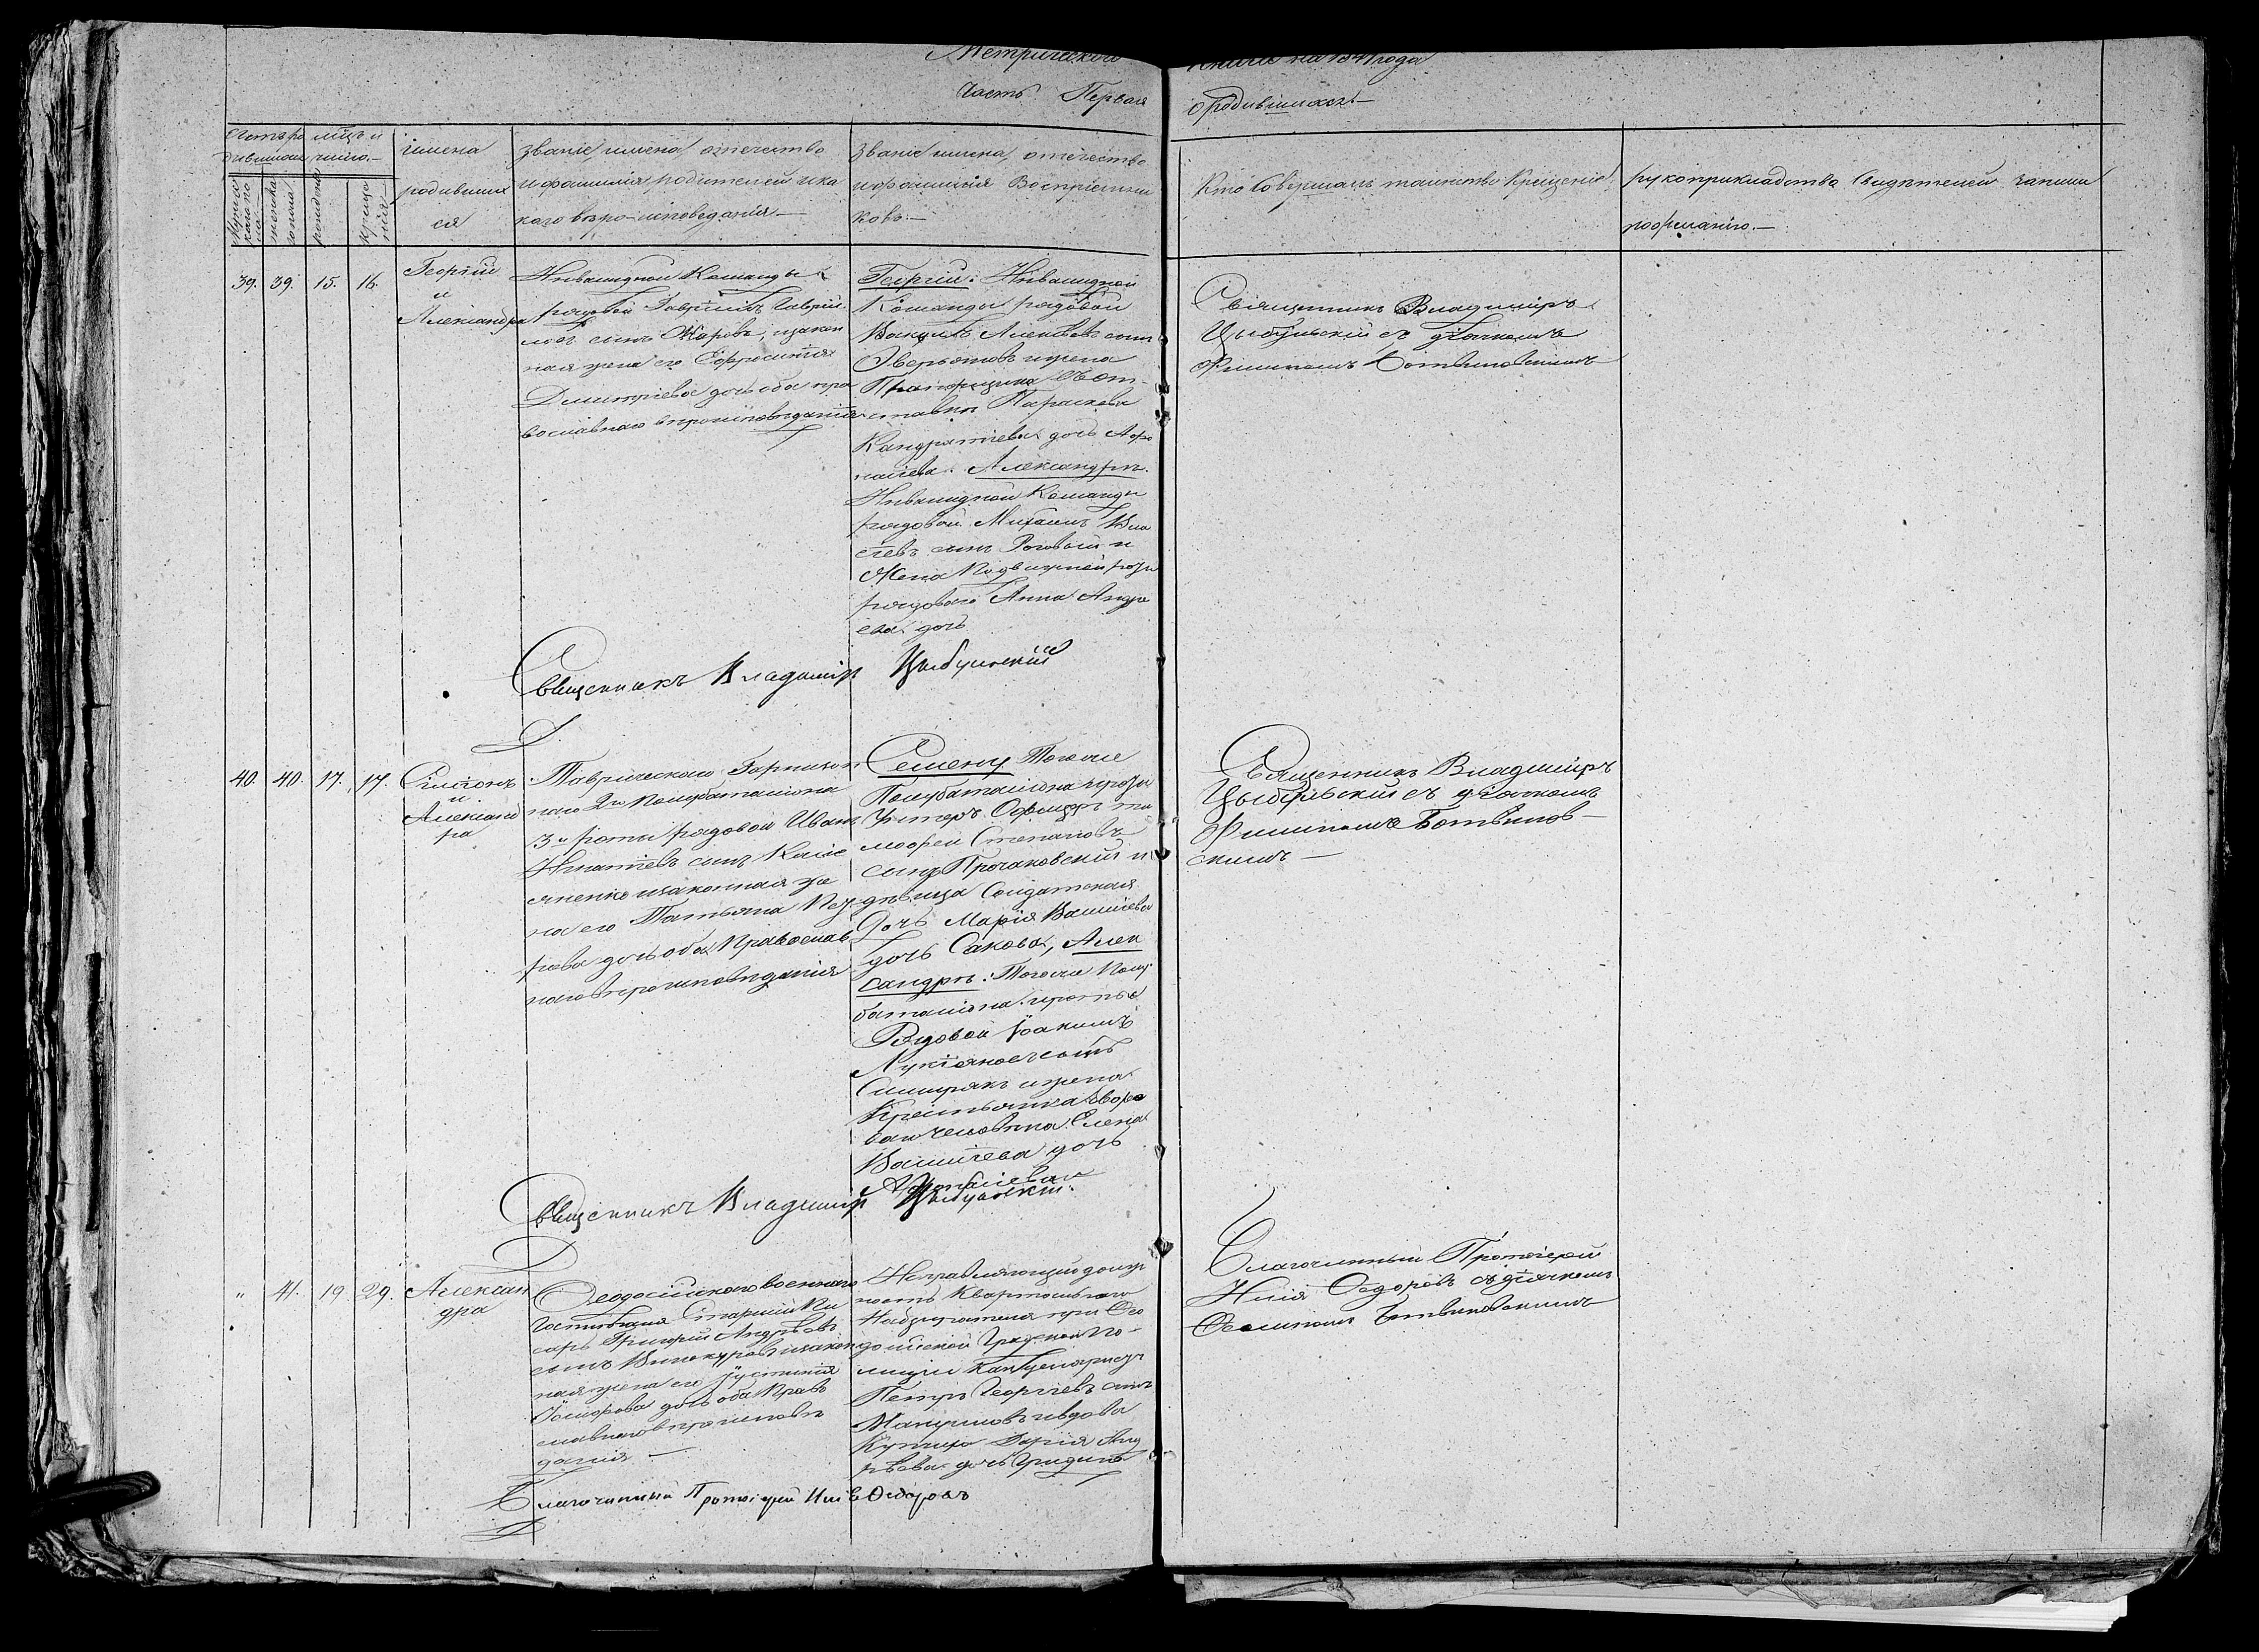 Метрической Книги на 1841 года
Часть Первая о родившихся
Счетъ ро дившихся
мѣсяцъ и число.
мужеска пола
женска пола
рожденія
крещенія
имена
родивших
ся
званіе, имена, отечество
и фамилія родителей и ка
кого вѣро-исповеданія
званіе имена, отечество
и фамилія Воспріемни
ковъ.
Кто Совершалъ таинство Крещенія
рукоприкладства Свидѣтелей записи
по желанію.
39. 39. 15. 16.
Георгій
и
Александра
Инвалидной Команды
рядовой Гавріилъ Гаврій
ловъ сынъ Жаровъ, и закон
ная жена его Ефросинія
Димитріева дочь оба пра
вославнаго вѣроисповѣданія
Георгій: Инвалидной
Команды рядовой
Вакулъ Алексѣевъ сынъ
Зверьковъ и жена
Прапорщика въ от-
ставки Параскева
Кандратіева дочь Афо
насіева. Александры.
Инвалидной Команды
рядовой Михаилъ
сынъ и
Жена Подвижной роты
рядоваго Анна Андре
ева дочь
Священникъ Владиміръ
Цыбульскій съ дьячкомъ
Филипомъ Ботвиновскимъ
Священникъ Владимір Цыбульскій
40. 40. 17. 17.
Симеонъ
и
Александ
ра
Таврическаго Гарнизон
наго 2го Полубаталіона
3й роты рядовой Иванъ
Игнатіевъ сынъ Коле
сниченко и законная же
на его Татьяна Пет
рова дочь оба Православ
наго вѣроисповѣданія
Семену Тогоже
Полубаталіона и роты
Унтеръ Офицеръ Ти
мофей Степановъ
сынъ Прочаковскій и
дѣвица Солдатская
Дочь Марія Василіева
дочь Сакова, Алек
сандры: Тогоже Полу
баталіона и роты
Рядовой Іоакимъ
Лукіяновъ сынъ
и жена
Крестьянка
Елена
Василіева дочь
Афонасіева
Священникъ Владиміръ
Цыбульскій съ дьячкомъ
Филипомъ Ботвинов-
скимъ
Священникъ Владимір Цыбульскій.
" 41. 19. 29.
Алексан
дра
Феодосійскаго военнаго
Госпиталя Старшій Пи
сарь Григорій Андрѣевъ
сынъ Винокуровъ и закон
ная жена его Іустинія
дочь оба Право
славнаго вѣроисповѣ
данія
Исправляющій долж
ность Квартальнаго
Надзирателя при Фео
досійской Градской По-
лиціи Канцеляристъ
Петръ Георгіевъ сынъ
и вдова
Купчиха Дарія Анд
рѣева дочь
Благочинный Протоіерей
Илія Федоровъ съ дьячкомъ
Филипомъ Ботвиновскимъ
Благочинный Протоіерей Илія Федоровъ